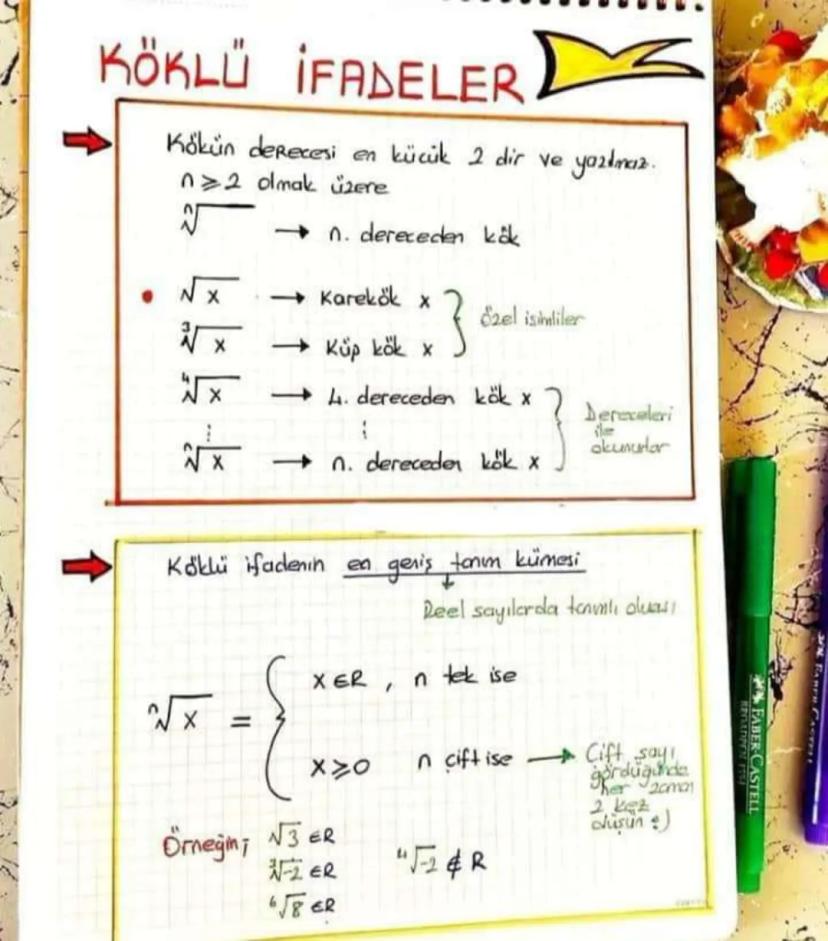 KÖKLÜ İFADELER
Kökün derecesi en küçük 2 dir ve yazılmaz.
n ⩾ 2 olmak üzere
ⁿ√ → n. dereceden kök
• √x → Karekök x
³√x → Küp kök x
özel isimliler
⁴√x → 4. dereceden kök x
⋮ ⋮
ⁿ√x → n. dereceden kök x
Dereceleri
ile
okunurlar
Köklü ifadenin en geniş tanım kümesi
Reel sayılarda tanımlı olması
ⁿ√x = {
x ∈ R , n tek ise
x ⩾ 0 n çift ise →
Çift sayı
gördüğünde
her zaman
2 kez
düşün :)
Örneğin;
√3 ∈ R
³√-2 ∈ R
⁶√8 ∈ R
⁴√-2 ∉ R
FABER-CASTELL
FABER-CASTELL